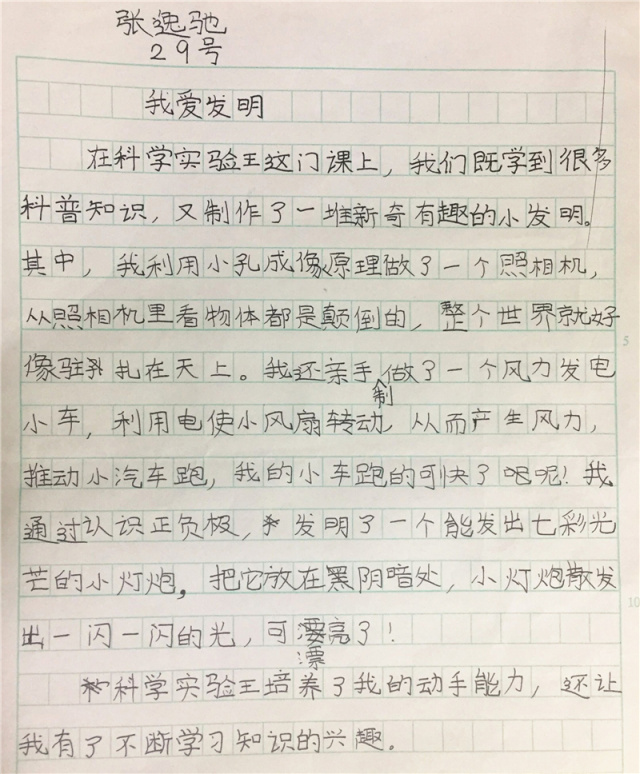 张逸驰
29号
我爱发明
在科学实验王这门课上，我们既学到很多
科普知识，又制作了一堆新奇有趣的小发明。
其中，我利用小孔成像原理做了一个照相机，
从照相机里看物体都是颠倒的，整个世界就好
像驻扎在天上。我还亲手制做了一个风力发电
小车，利用电使小风扇转动，从而产生风力，
推动小汽车跑，我的小车跑的可快了呢！我
通过认识正负极，发明了一个能发出七彩光
芒的小灯炮，把它放在黑阴暗处，小灯炮散发
出一闪一闪的光，可漂亮了！
科学实验王培养了我的动手能力，还让
我有了不断学习知识的兴趣。
5
10